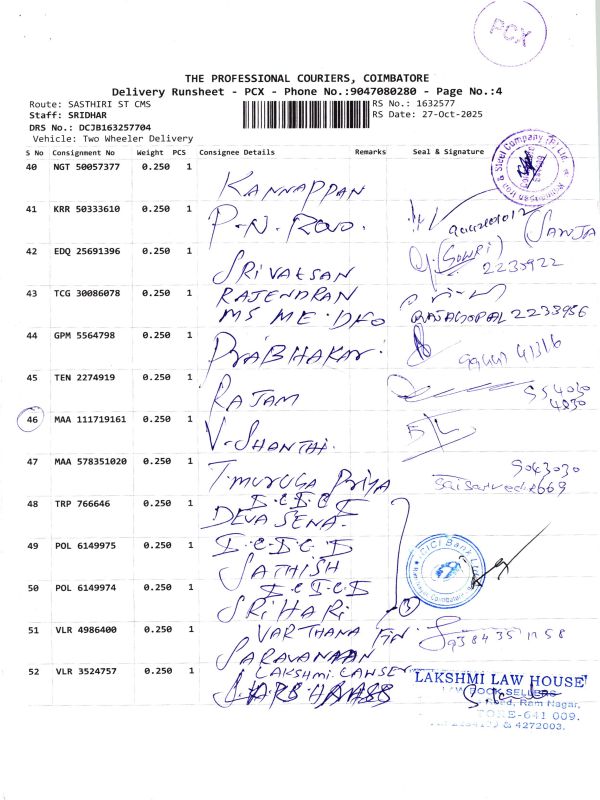 PCX
THE PROFESSIONAL COURIERS, COIMBATORE
Delivery Runsheet - PCX - Phone No.:9047080280 - Page No.:4
Route: SASTHIRI ST CMS RS No.: 1632577
Staff: SRIDHAR RS Date: 27-Oct-2025
DRS No.: DCJB163257704
Vehicle: Two Wheeler Delivery
S No Consignment No Weight PCS Consignee Details Remarks Seal & Signature
40 NGT 50057377 0.250 1 KANNAPPAN
& Steel Company (P) Ltd.
41 KRR 50333610 0.250 1 P.N.
42 EDQ 25691396 0.250 1 SRIVATSAN (GOWRI) 2230922
43 TCG 30086078 0.250 1 RAJENDRAN
MS ME.DFO RAJAGOPAL 2233956
44 GPM 5564798 0.250 1 PRABHAKAR
45 TEN 2274919 0.250 1 RAJAM
46 MAA 111719161 0.250 1 V-SHANTHI.
47 MAA 578351020 0.250 1 T MURUGA PRIYA 9043030
48 TRP 766646 0.250 1 I.C.I.C.I
DEVASENA.
49 POL 6149975 0.250 1 I.C.I.C.I
SATHISH
ICICI Bank Ltd
50 POL 6149974 0.250 1 I.C.I.C.I
SRIHARI 3
51 VLR 4986400 0.250 1 VARTHANA FIN
SARAVANAAN
52 VLR 3524757 0.250 1 LAKSHMI
LAKSHMI LAW HOUSE
LAW BOOK SELLERS
Road, Ram Nagar,
TORE-641 009.
& 4272003.